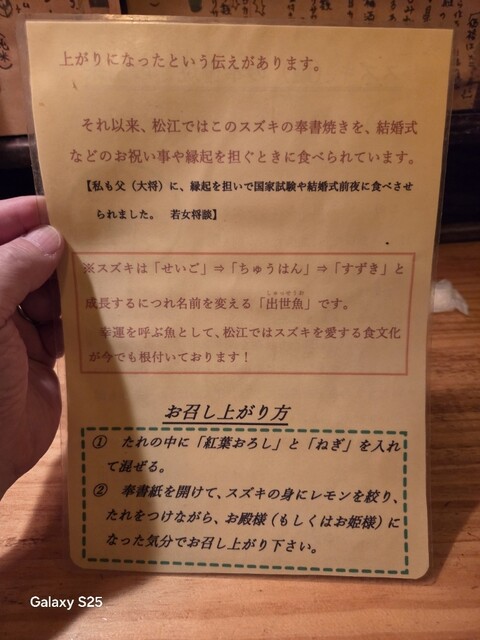 上がりになったという伝えがあります。
それ以来、松江ではこのスズキの奉書焼きを、結婚式
などのお祝い事や縁起を担ぐときに食べられています。
【私も父（大将）に、縁起を担いで国家試験や結婚式前夜に食べさせ
られました。 若女将談】
※スズキは「せいご」⇒「ちゅうはん」⇒「すずき」と
しゅっせうお
成長するにつれ名前を変える「出世魚」です。
幸運を呼ぶ魚として、松江ではスズキを愛する食文化
が今でも根付いております！
お召し上がり方
① たれの中に「紅葉おろし」と「ねぎ」を入れ
て混ぜる。
② 奉書紙を開けて、スズキの身にレモンを絞り、
たれをつけながら、お殿様（もしくはお姫様）に
なった気分でお召し上がり下さい。
Galaxy S25